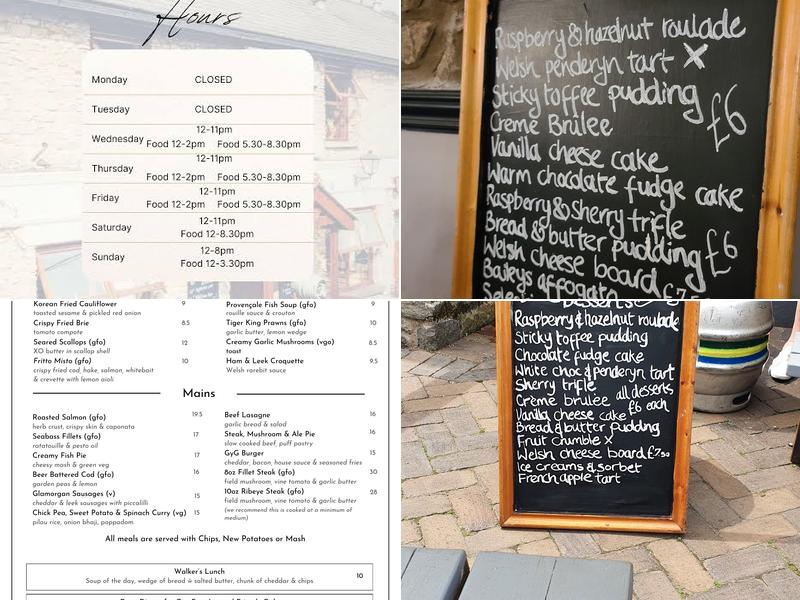 Hours
Monday CLOSED
Tuesday CLOSED
Wednesday 12-11pm
Food 12-2pm Food 5.30-8.30pm
Thursday 12-11pm
Food 12-2pm Food 5.30-8.30pm
Friday 12-11pm
Food 12-2pm Food 5.30-8.30pm
Saturday 12-11pm
Food 12-8.30pm
Sunday 12-8pm
Food 12-3.30pm
Raspberry & hazelnut roulade
Welsh penderyn tart X
Sticky toffee pudding
£6
Creme Brulee
Vanilla cheese cake
Warm chocolate fudge cake
Raspberry & Sherry trifle
Bread & butter pudding £6
Welsh cheese board £7.5
Baileys affogato
Korean Fried Cauliflower 9
toasted sesame & pickled red onion
Crispy Fried Brie 8.5
tomato compote
Seared Scallops (gfo) 12
XO butter in scallop shell
Fritto Misto (gfo) 10
crispy fried cod, hake, salmon, whitebait
& crevette with lemon aioli
Provençale Fish Soup (gfo) 9
rouille sauce & crouton
Tiger King Prawns (gfo) 10
garlic butter, lemon wedge
Creamy Garlic Mushrooms (vgo) 8.5
toast
Ham & Leek Croquette 9.5
Welsh rarebit sauce
Mains
Roasted Salmon (gfo) 19.5
herb crust, crispy skin & caponata
Seabass Fillets (gfo) 17
ratatouille & pesto oil
Creamy Fish Pie 17
cheesy mash & green veg
Beer Battered Cod (gfo) 16
garden peas & lemon
Glamorgan Sausages (v) 15
cheddar & leek sausages with piccalilli
Chick Pea, Sweet Potato & Spinach Curry (vg) 15
pilau rice, onion bhaji, poppadom
Beef Lasagne 16
garlic bread & salad
Steak, Mushroom & Ale Pie 16
slow cooked beef, puff pastry
GyG Burger 15
cheddar, bacon, house sauce & seasoned fries
8oz Fillet Steak (gfo) 30
field mushroom, vine tomato & garlic butter
10oz Ribeye Steak (gfo) 28
field mushroom, vine tomato & garlic butter
(we recommend this is cooked at a minimum of
medium)
All meals are served with Chips, New Potatoes or Mash
Walker's Lunch 10
Soup of the day, wedge of bread & salted butter, chunk of cheddar & chips
Desserts
Raspberry & hazelnut roulade
Sticky toffee pudding
Chocolate fudge cake
White choc & penderyn tart
Sherry trifle
all desserts
Creme brulee
£6 each
Vanilla cheese cake
Bread & butter pudding
Fruit crumble X
Welsh cheese board £7.50
Ice creams & sorbet
French apple tart